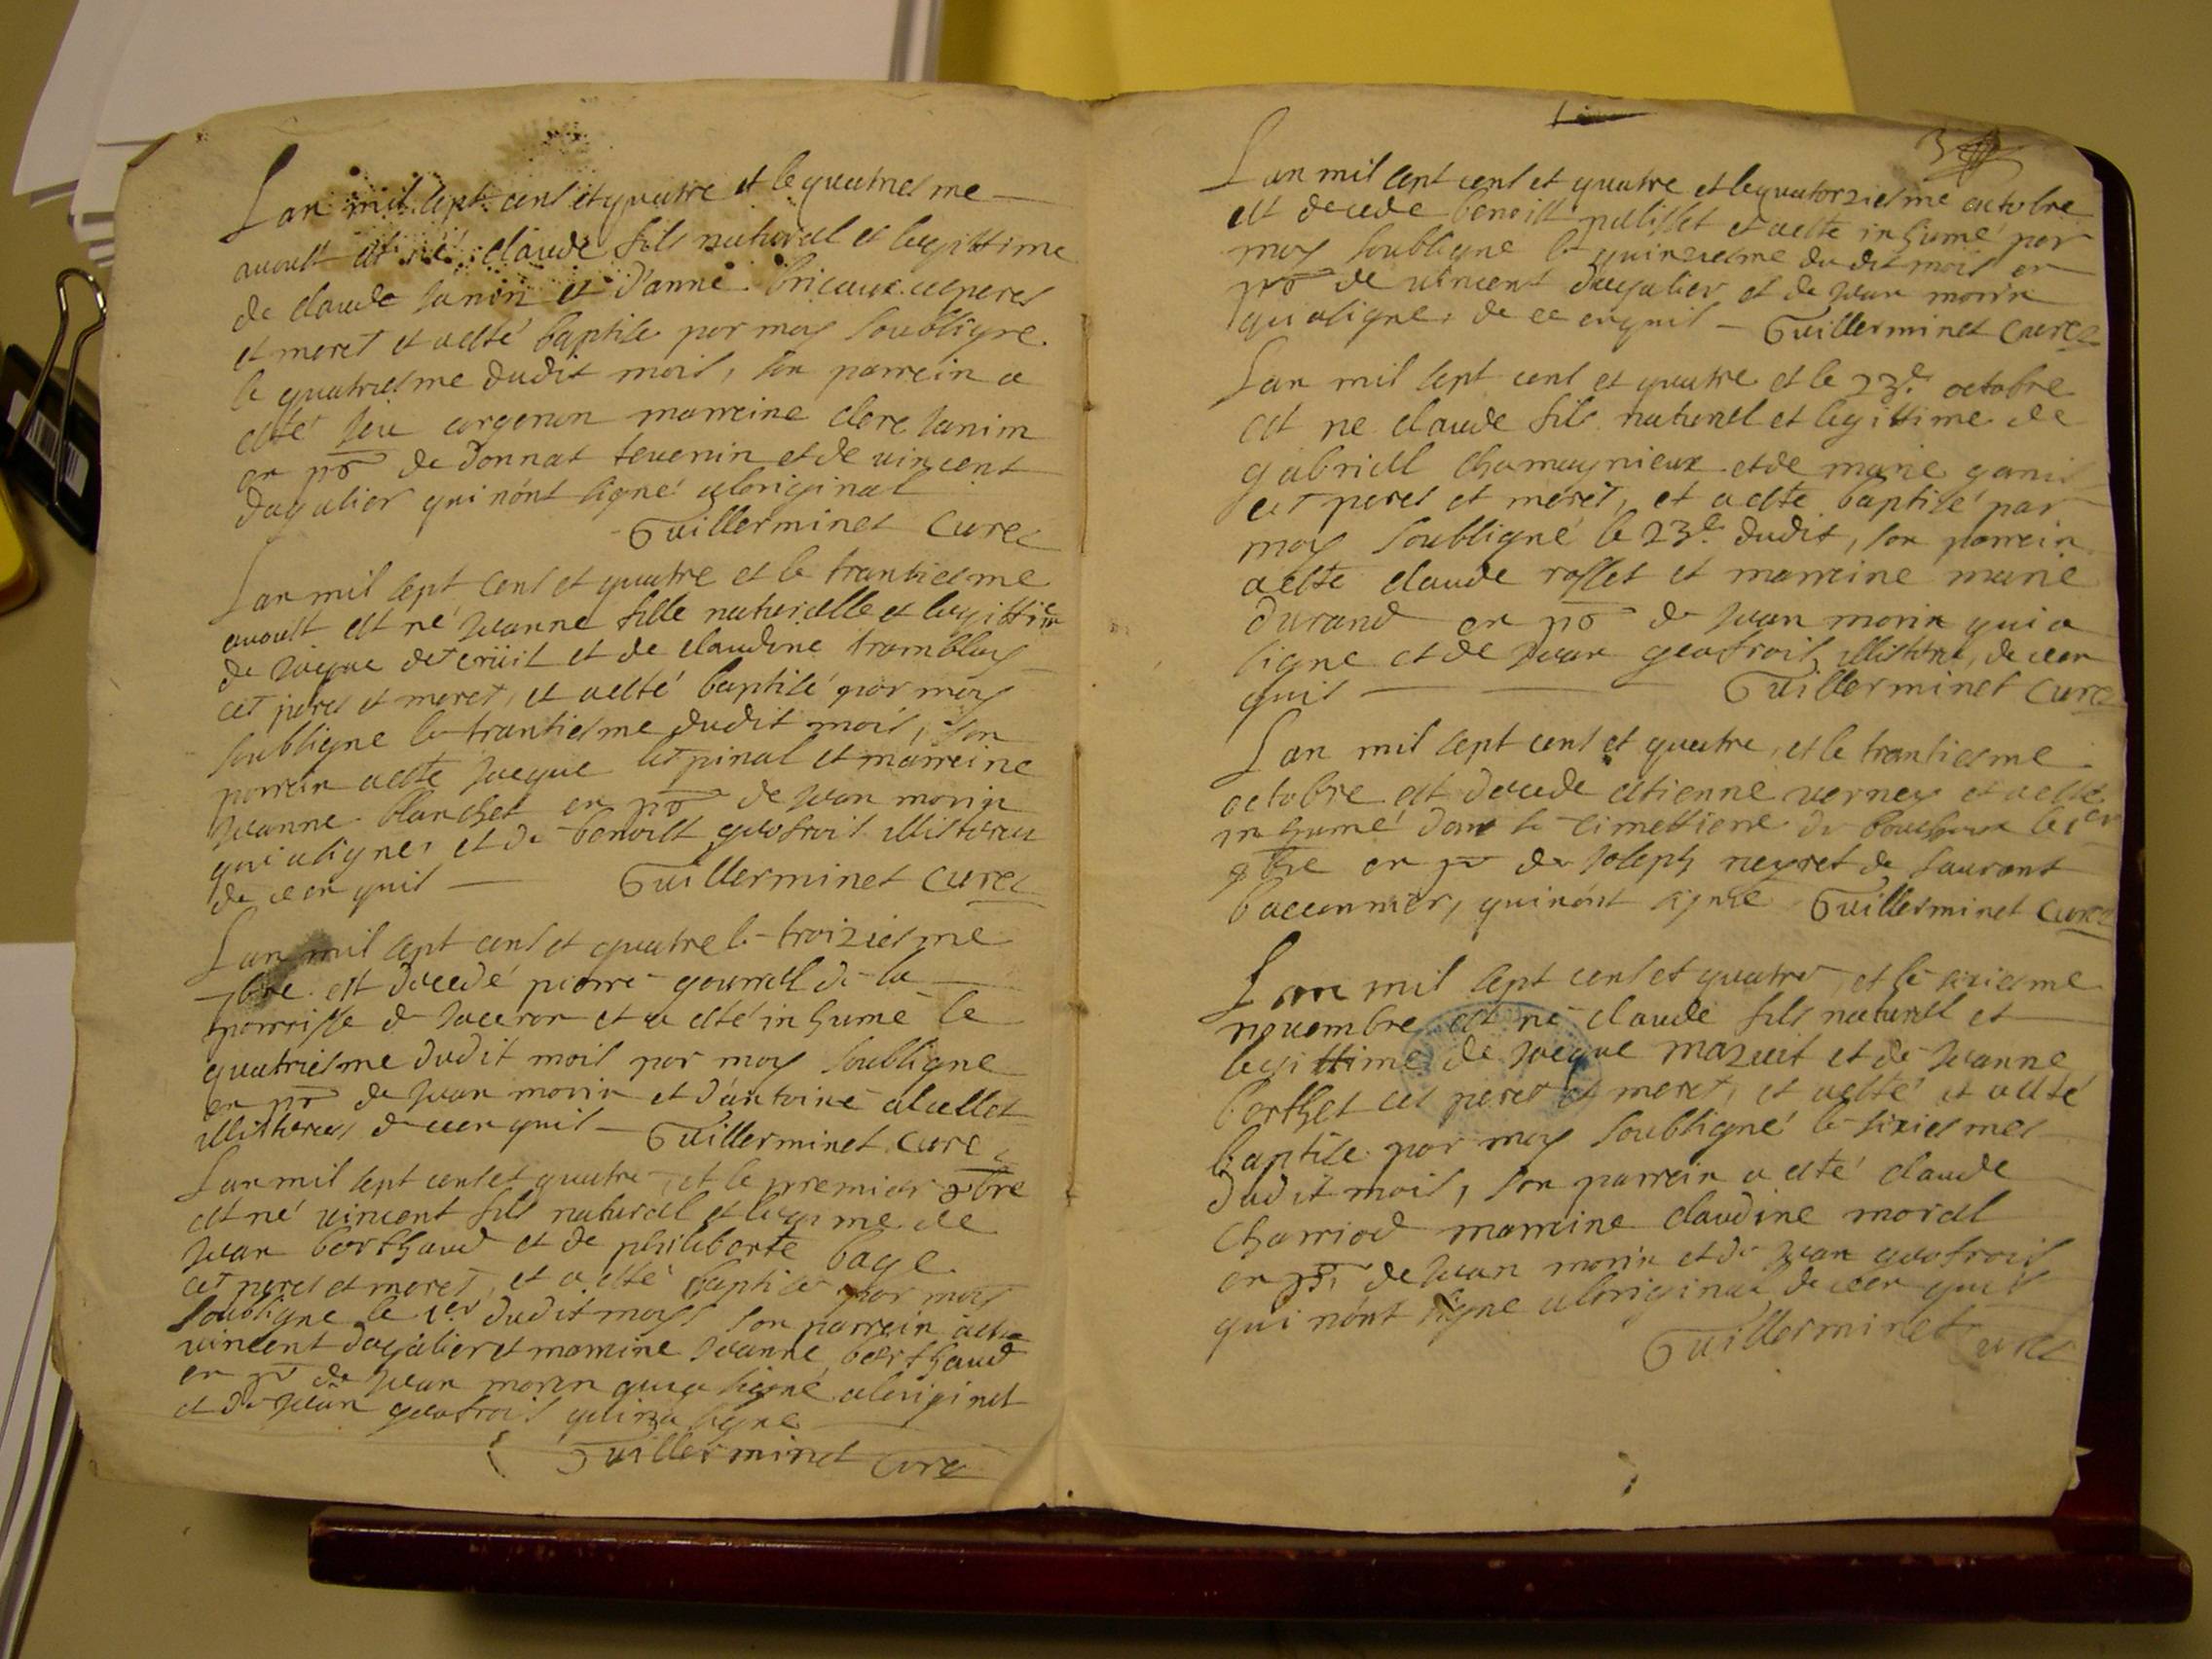 Lan mil sept cens et quatre et le quatriesme
avoust est né claude fils naturel et legittime
de claude Janin et d'anne bricaux ces peres
et meret et a esté baptise par moy soubsigne
le quatriesme dudit mois, son parrein a
esté argenon marreine clere Janim
en pñ de donnat tevenin et de vincent
dagalier qui nónt signé aloriginal
Guillerminet Curez
Lan mil sept cens et quatre et le trantiesme
avoust est né Jeanne fille naturelle et legittime
de Jaque et de claudine tramblay
cet peres et meret, et a esté baptisé par moy
soubsigne le trantiesme dudit mois, son
parrein a esté Jaque lespinal et marreine
Jeanne blanchet en pñ de Jean morin
qui a signer et de benoist geofrois illisteres
de ce en quis Guillerminet Curez
Lan mil sept cens et quatre le troiziesme
7bre est decedé pierre gourrel de la
parroisse de Succeron et a esté inhumé le
quatriesme dudit mois par moy soubsigne
en pñ de Jean morin et d'antoine
illisteres de ce en quis Guillerminet Cure
Lan mil sept cens et quatre et le premier 8bre
est né vincent fils naturel et de
Jean berthaud et de philiberte bage
cet peres et meret, et a esté baptise par moy
soubsigne le 1er dudit moys son parrein a esté
vincent dagalier et marreine Jeanne berthaud
en pñ de Jean morin qui a signé aloriginel
et de Jean geofrois qui na signe
Guillerminet Cure
3
Lan mil sept cens et quatre et le quatorziesme octobre
est decede benoist pelisset et a esté inhumé par
moy soubsigne le quinziesme dudit mois en
pñ de vincent dagalier et de Jean morin
qui a signer de ce enquis Guillerminet Curez
Lan mil sept cens et quatre et le 23e octobre
est ne claude fils naturel et legittime de
gabriel chamagnieux et de marie
cet peres et meret, et a esté baptisé par
moy soubsigné le 23e dudit, son parrein
a esté claude rosset et marreine marie
durand en pñ de Jean morin qui a
signe et de Jean geofrois illistere, de ce en
quis Guillerminet Cure
Lan mil sept cens et quatre, et le trantiesme
octobre est decede estienne verney et a esté
inhumé dans le cimettiere de le 1er
9bre en pñ de Joseph neyret de laurent
baconnier, qui nónt signe Guillerminet Curez
Lan mil sept cens et quatre et le sixiesme
novembre est né claude fils naturel et
legittime de Jaque mazuit et de Jeanne
berthet cet peret et meret, et a esté et a esté
baptise par moy soubsigné le sixiesmes
dudit mois, son parrein a esté claude
charriod marreine claudine morel
en pñ, de Jean morin et de Jean geofrois
qui nónt signe aloriginal de ce en quis
Guillerminet Cure